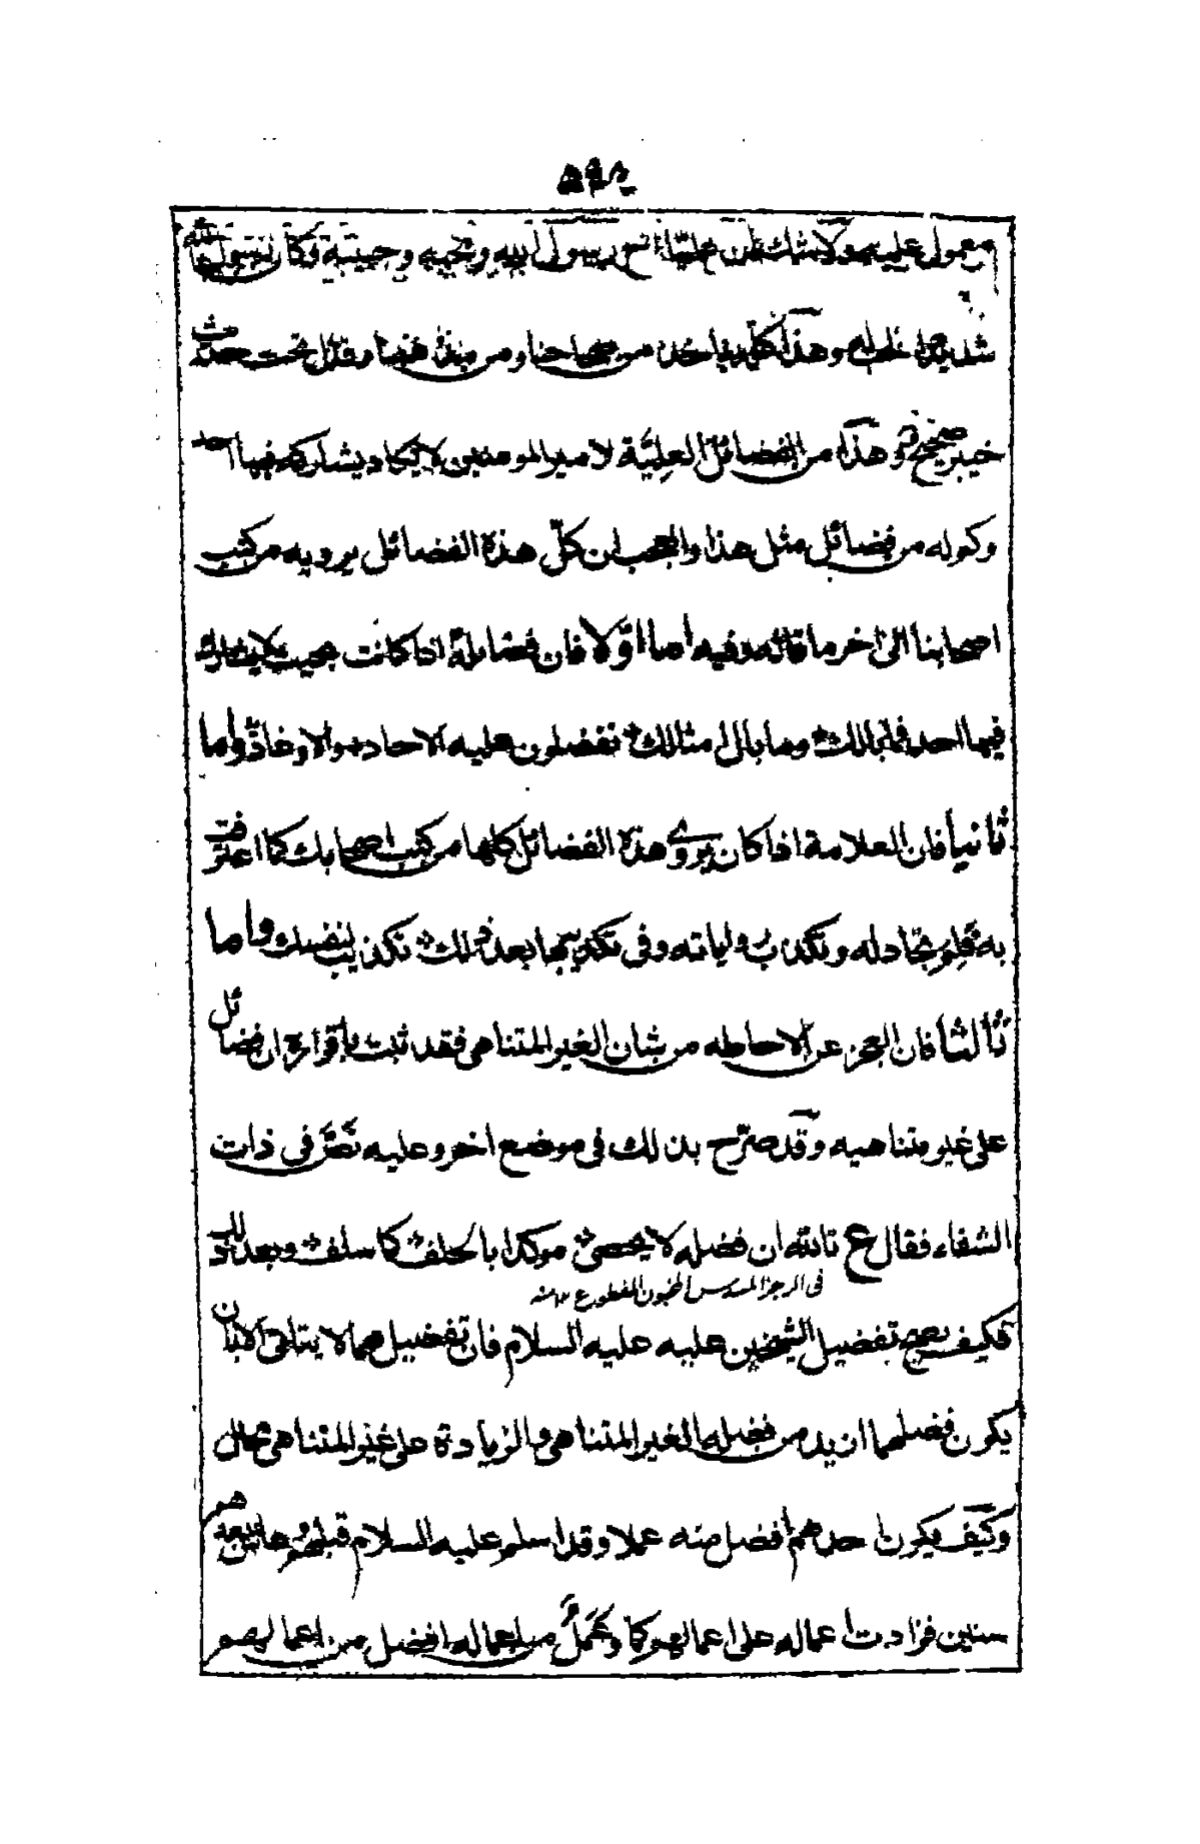 ٥٩٨
معمول عليه ولا شك ان عليا اخ رسول الله و محبه و حبيبه و كان رسول الله
شديد الحب له وهذا كله ماخذ من صحاحنا ومن مبغض فقل تحت حديث
خيبر صحيح وهذا من الفضائل العلية لامير المومنين لا يكاد يشاركه فيها احد
وكم له من فضائل مثل هذا والعجب ان كلّ هذه الفضائل يرويه من كتب
اصحابنا الى اخر ما قاله وفيه اما اوّلا فان فضائله اذا كانت بحيث لا يشارك
فيها احد فما بالك وما بال امثالك تفضلون عليه الاحاد والاوغاد واما
ثانيا فان العلامة اذا كان يروى هذه الفضائل كلها من كتب اصحابك كما اعترفت
به فلم تجادله وتكذب رواياته وفى تكذيبها بعد ذلك تكذيب لنفسك واما
ثالثا فان العجز عن الاحاطه من شان الغير المتناهى فقد ثبت باقراره ان فضائل
على غير متناهيه وقد صرّح بذلك فى موضع اخر وعليه نصّ فى ذات
الشفاء فقال ع تالله ان فضله لا يحصى موكدا بالحلف كما سلف وبعد ذلك
فى الرجز المسدس المخبون المقطوع ١٢ منه
فكيف يصح تفضيل الشيخين عليه عليه السلام فان تفضيلهما لا يتاتى الا بان
يكون فضلهما ازيد من فضله الغير المتناهى والزيادة على غير المتناهى محال
وكيف يكون احدهم افضل منه عملا وقد اسلم عليه السلام قبلهم
سنين فزادت اعماله على اعمالهم كما وعمل من اعماله افضل من اعمالهم